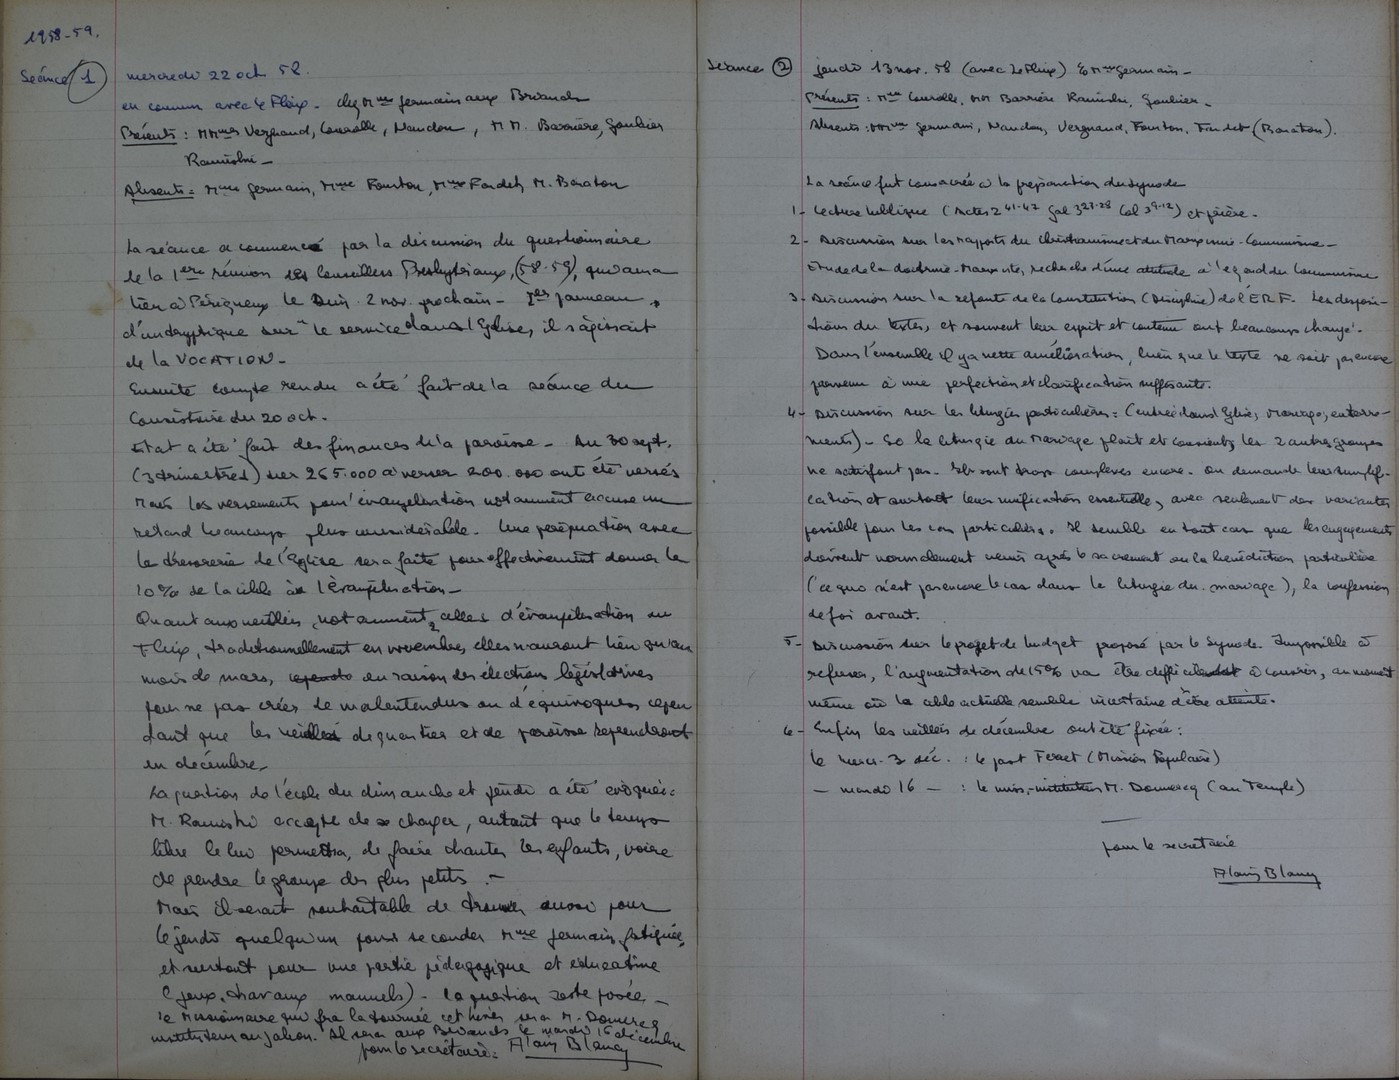 1958-59.
Séance 1 mercredi 22 oct 58.
en commun avec le Fleix. chez Mme Germain aux Briands
Présents : MMmes Vergnaud, Courolle, Naudon, MM. Barrière, Goulier
Ramiski _
Absents = Mmes Germain, Mme Fourton, Mme Fardet, M. Baraton
La séance a commencé par la discussion du questionnaire
de la 1ère réunion des Conseillers Presbytéraux, (58-59), qui aura
lieu à Périgueux le Dim. 2 nov. prochain - 1er panneau
d'un tryptique sur "le service dans l'Eglise, il s'agissait
de la VOCATION -
Ensuite compte rendu a été fait de la séance du
Consistoire du 20 oct.
Etat a été fait des finances de la paroisse - Au 30 sept.
(3 trimestres) sur 265.000 à verser 200.000 ont été versés
Mais les versements pour l'évangélisation notamment accuse un
retard beaucoup plus considérable. Une péréquation avec
la trésorerie de l'Eglise sera faite pour effectivement donner le
10% de la cible à l'évangélisation -
Quant aux veillées, notamment celles d'évangélisation au
Fleix, traditionnellement en novembre, elles n'auront lieu qu'au
mois de mars, en raison des élections législatives
pour ne pas créer de malentendus ou d'équivoques, cepen
dant que les veillées de quartier et de paroisse reprendront
en décembre -
La question de l'école du dimanche et jeudi a été évoquée :
M. Ramiski accepte de se charger, autant que le temps
libre le lui permettra, de faire chanter les enfants, voire
de prendre le groupe des plus petits . -
Mais il serait souhaitable de trouver aussi pour
le jeudi quelqu'un pour seconder Mme Germain, fatiguée,
et surtout pour une partie pédagogique et éducative
(jeux, travaux manuels) - la question reste posée -
le Missionnaire qui fera la tournée cet hiver sera M. Domercq
instituteur au Gabon. Il sera aux Briands le mardi 16 décembre
pour le secrétaire : Alain Blancy
Séance 2 jeudi 13 nov. 58 (avec Le Fleix) Mme Germain -
Présents : Mme Courolle, MM Barrière Ramiski, Goulier -
Absents : MMmes Germain, Naudon, Vergnaud, Fourton, Fardet (Baraton).
La séance fut consacrée à la préparation du Synode
1 - Lecture biblique (Actes 2 41-47 Gal 3 27-28 Col 3 9-12) et prière -
2 - Discussion sur les rapports du Christianisme et du Marxisme-Communisme -
Etude de la doctrine Marxiste, recherche d'une attitude à l'égard du Communisme
3 - Discussion sur la refonte de la Constitution (Discipline) de l'ERF. Les disposi-
tions des textes, et souvent leur esprit et contenu ont beaucoup changé.
Dans l'ensemble il y a nette amélioration, bien que le texte ne soit pas encore
parvenu à une perfection et clarification suffisante.
4 - Discussion sur les liturgies particulières : (entrée dans l'Eglise, Mariage, enterre-
ments) - Si la liturgie du Mariage plaît et convient, les 2 autres groupes
ne satisfont pas - Ils sont trop complexes encore. On demande leur simplifi-
cation et surtout leur unification essentielle, avec seulement des variantes
possible pour les cas particuliers. Il semble en tout cas que les engagements
doivent normalement venir après le sacrement ou la bénédiction particulière
(ce qui n'est pas encore le cas dans la liturgie du mariage), la confession
de foi avant.
5 - Discussion sur le projet de budget proposé par le Synode. Impossible à
refuser, l'augmentation de 15% va être difficile à couvrir, au moment
même où la cible actuelle semble incertaine d'être atteinte.
6 - Enfin les veillées de décembre ont été fixées :
le merc. 3 déc. : le past Ferret (Mission Populaire)
- mardi 16 - : le miss.-instituteur M. Domercq (au Temple)
pour le secrétaire
Alain Blancy